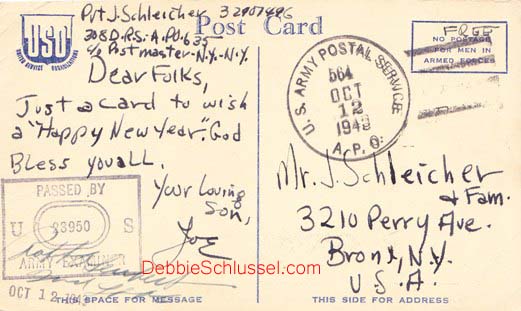 Post Card
USO
UNITED SERVICE ORGANIZATIONS
Pvt J. Schleicher 32907496
c/o Postmaster-N.Y.-N.Y.
Dear Folks,
Just a card to wish
a "Happy New Year". God
Bless you all.
Your Loving
Son,
Joe
PASSED BY
U S
ARMY EXAMINER
OCT 12
THIS SPACE FOR MESSAGE
FREE
NO POSTAGE
FOR MEN IN
ARMED FORCES
U.S. ARMY POSTAL SERVICE
564
OCT
12
1943
A.P.O.
Mr. J. Schleicher
& Fam.
3210 Perry Ave.
Bronx, N.Y.
U.S.A.
THIS SIDE FOR ADDRESS
DebbieSchlussel.com